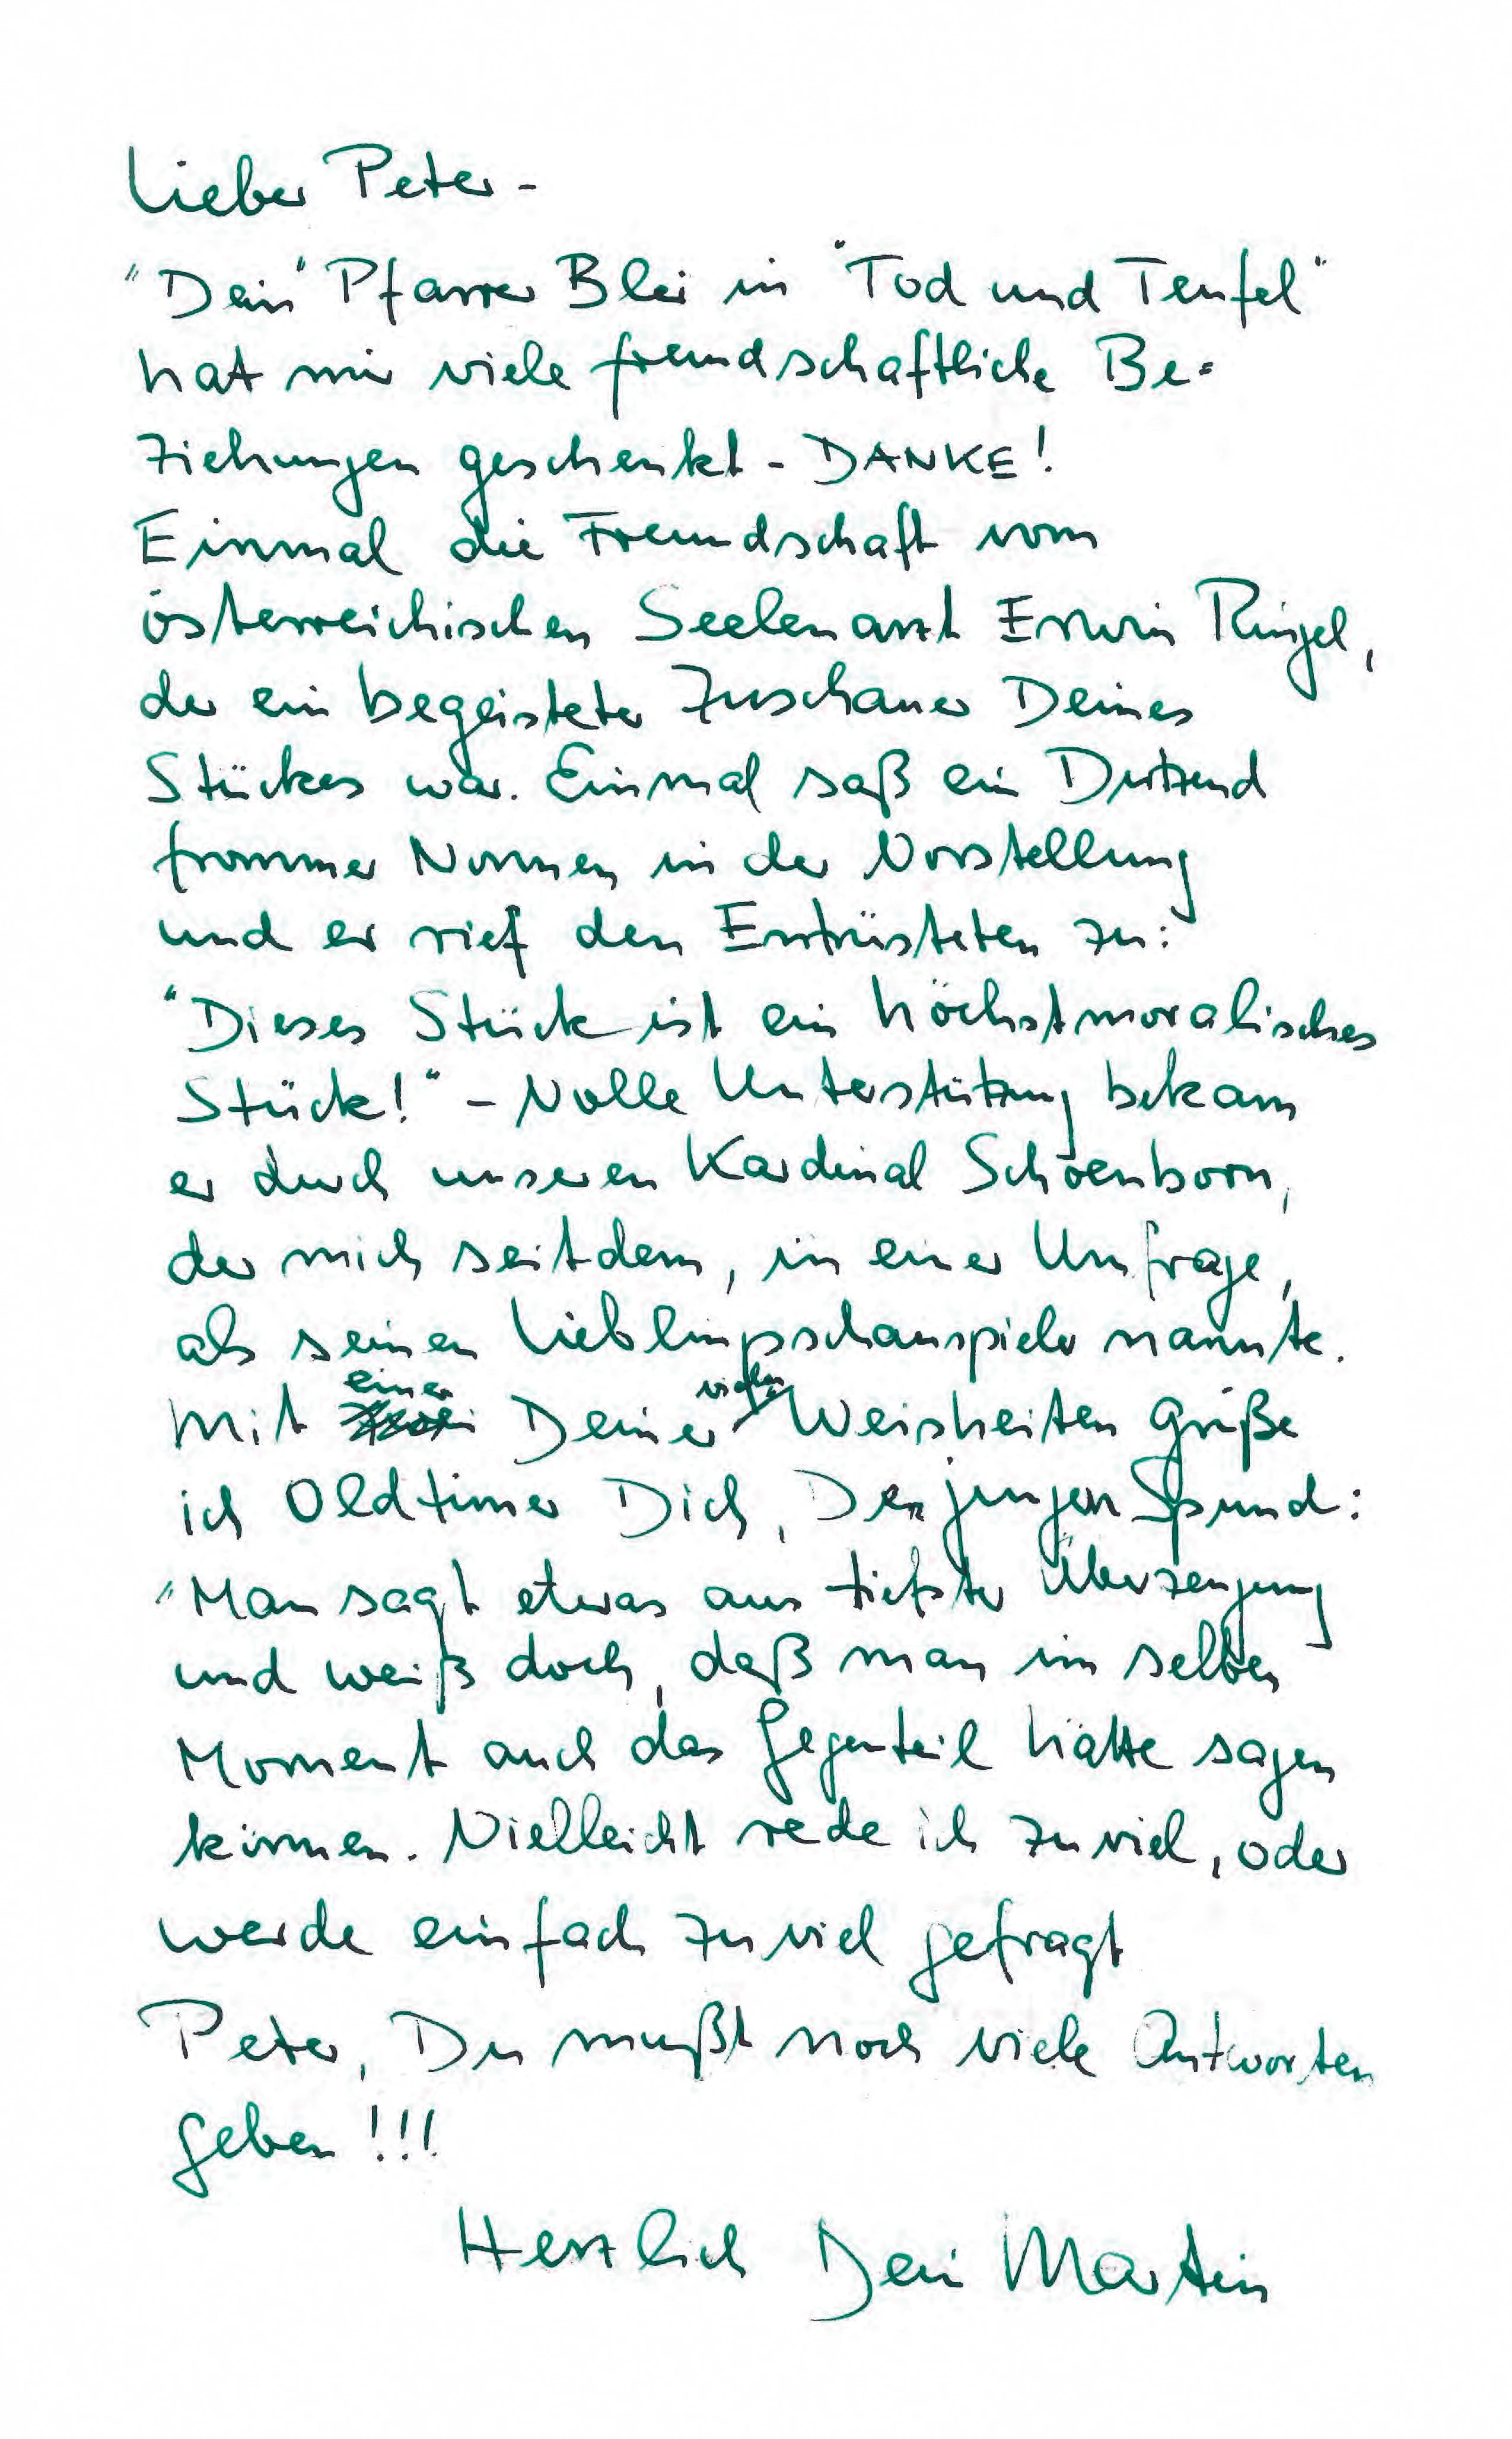 Lieber Peter -
"Dein" Pfarrer Blei in "Tod und Teufel"
hat mir viele freundschaftliche Be=
ziehungen geschenkt - DANKE!
Einmal die Freundschaft vom
österreichischen Seelenarzt Erwin Ringel,
der ein begeisteter Zuschauer Deines
Stückes war. Einmal saß ein Dutzend
frommer Nonnen in der Vorstellung
und er rief den Entrüsteten zu:
"Dieses Stück ist ein höchstmoralisches
Stück!" - Volle Unterstützung bekam
er durch unseren Kardinal Schoenborn,
der mich seitdem, in einer Umfrage,
als seinen Lieblingsschauspieler nannte.
Mit einer Deiner vielen Weisheiten grüße
ich Oldtimer Dich, Den jungen Spund:
"Man sagt etwas aus tiefster Überzeugung
und weiß doch, daß man im selben
Moment auch das Gegenteil hätte sagen
können. Vielleicht rede ich zuviel, oder
werde einfach zuviel gefragt
Peter, Du mußt noch viele Antworten
geben!!!
Herzlich Dein Martin